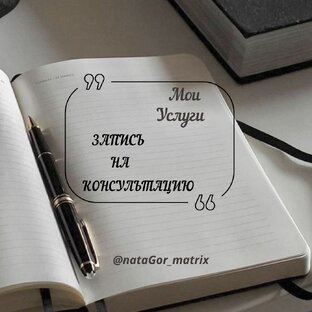 Мои
Услуги
ЗАПИСЬ
НА
КОНСУЛЬТАЦИЮ
@nataGor_matrix